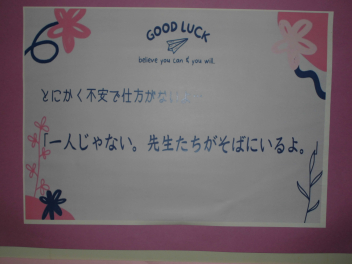 GOOD LUCK
believe you can & you will.
とにかく不安で仕方がない
「一人じゃない。先生たちがそばにいるよ。